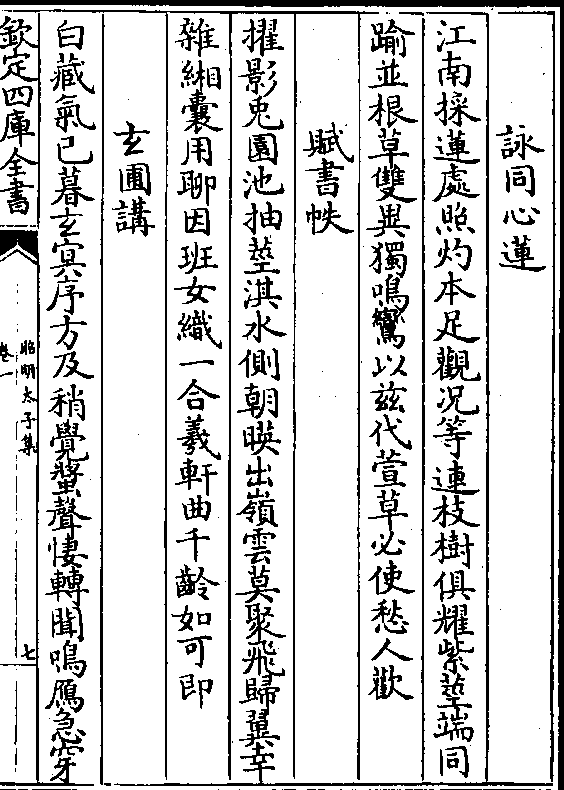 詠同心蓮
江南採蓮處照灼本足觀况等連枝樹俱耀紫莖端同
踰並根草雙異獨鳴鸞以兹代萱草必使愁人歡
賦書帙
擢影兎園池抽莖淇水側朝暎出嶺雲莫聚飛歸翼幸
雜緗囊用聊因班女織一合羲軒曲千齡如可即
玄圃講
白藏氣已暮玄㝠序方及稍覺螿聲悽轉聞鳴鴈急穿
欽定四庫全書
昭明太子集
卷一
七